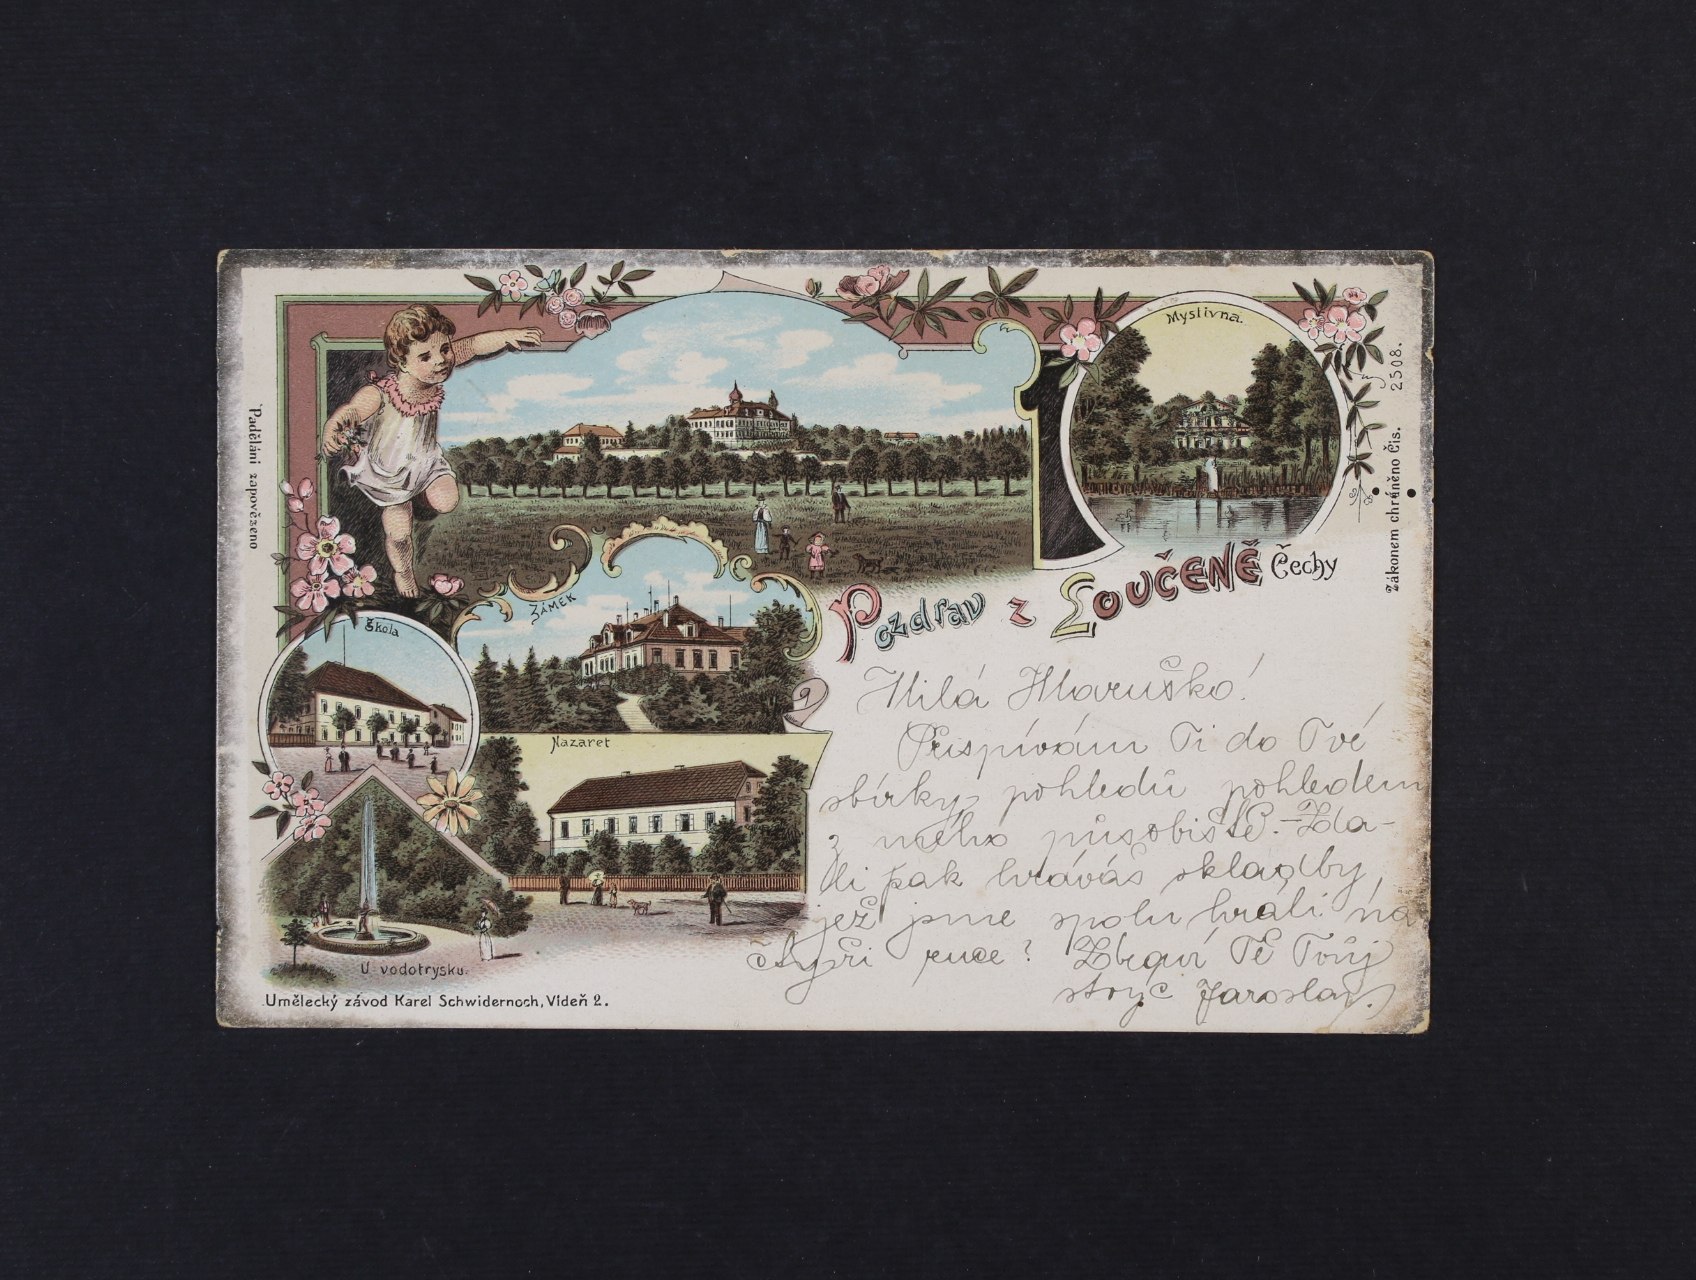 Mystivna.
Zákonem chráněno Čís. 2508.
Padělání zapovězeno
Pozdrav z Loučeně Čechy
ZÁMEK
Škola
Nazaret
U vodotrysku.
Milá Maruško!
Přispívám Ti do Tvé
sbírky pohledů pohledem
z mého působiště. - Zda-
li pak hráváš skladby,
jež jsme spolu hráli na
čtyři ruce? Zbraní Tě Tvůj
strýc Jaroslav.
Umělecký závod Karel Schwidernoch, Vídeň 2.